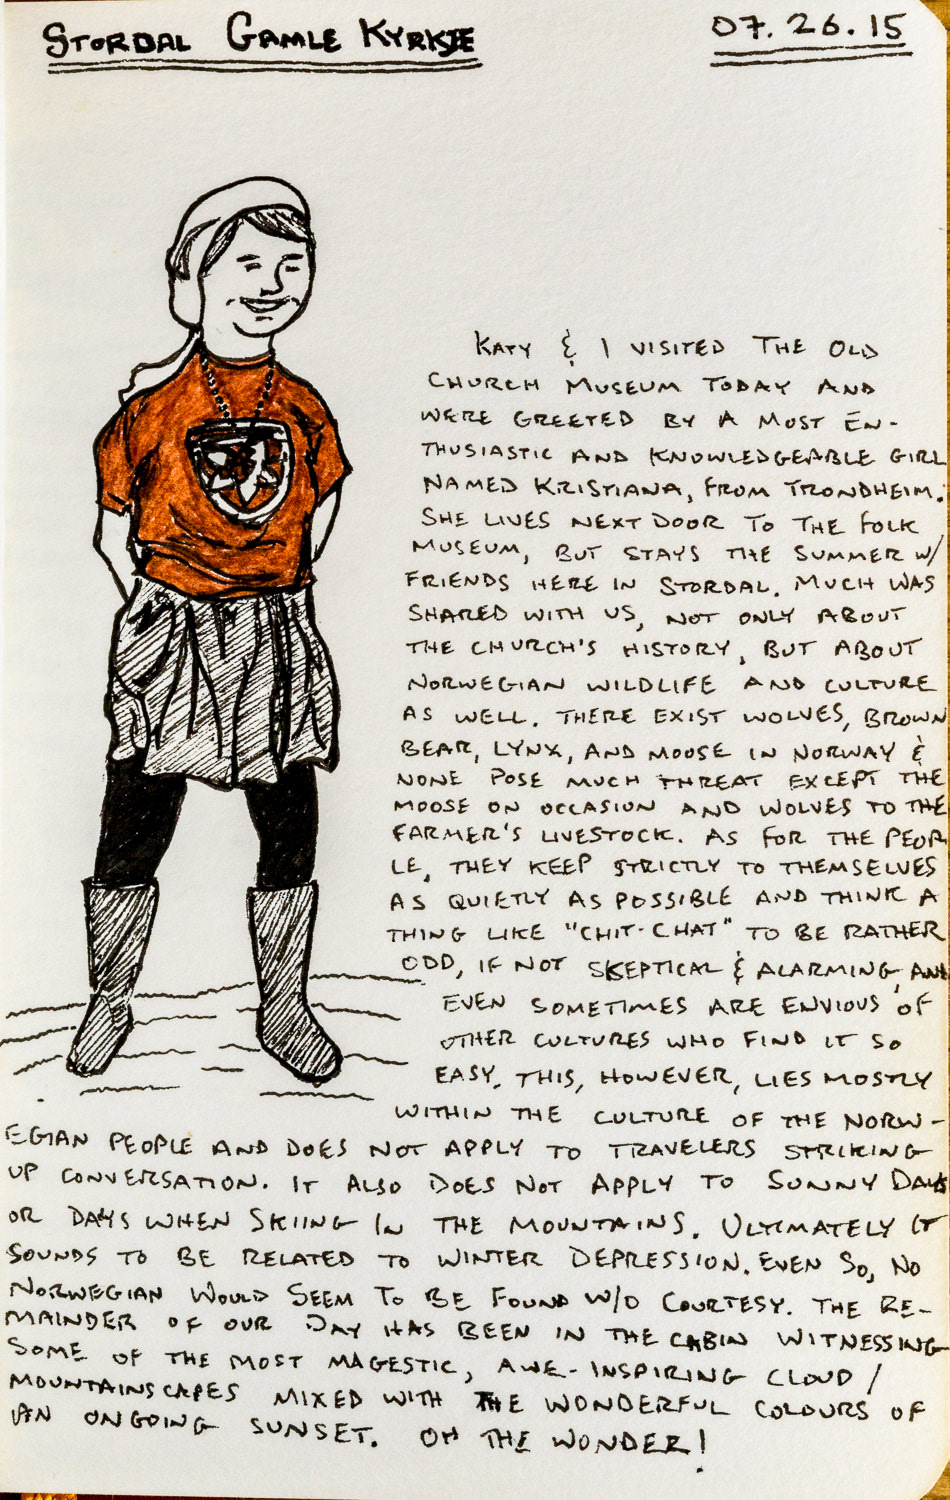 STORDAL GAMLE KYRKJE
07.26.15
KATY & I VISITED THE OLD
CHURCH MUSEUM TODAY AND
WERE GREETED BY A MOST EN-
THUSIASTIC AND KNOWLEDGEABLE GIRL
NAMED KRISTIANA, FROM TRONDHEIM.
SHE LIVES NEXT DOOR TO THE FOLK
MUSEUM, BUT STAYS THE SUMMER W/
FRIENDS HERE IN STORDAL. MUCH WAS
SHARED WITH US, NOT ONLY ABOUT
THE CHURCH'S HISTORY, BUT ABOUT
NORWEGIAN WILDLIFE AND CULTURE
AS WELL. THERE EXIST WOLVES, BROWN
BEAR, LYNX, AND MOOSE IN NORWAY &
NONE POSE MUCH THREAT EXCEPT THE
MOOSE ON OCCASION AND WOLVES TO THE
FARMER'S LIVESTOCK. AS FOR THE PEOP
LE, THEY KEEP STRICTLY TO THEMSELVES
AS QUIETLY AS POSSIBLE AND THINK A
THING LIKE "CHIT-CHAT" TO BE RATHER
ODD, IF NOT SKEPTICAL & ALARMING, AND
EVEN SOMETIMES ARE ENVIOUS OF
OTHER CULTURES WHO FIND IT SO
EASY. THIS, HOWEVER, LIES MOSTLY
WITHIN THE CULTURE OF THE NORW-
EGIAN PEOPLE AND DOES NOT APPLY TO TRAVELERS STRIKING
UP CONVERSATION. IT ALSO DOES NOT APPLY TO SUNNY DAYS
OR DAYS WHEN SKIING IN THE MOUNTAINS. ULTIMATELY IT
SOUNDS TO BE RELATED TO WINTER DEPRESSION. EVEN SO, NO
NORWEGIAN WOULD SEEM TO BE FOUND W/O COURTESY. THE RE-
MAINDER OF OUR DAY HAS BEEN IN THE CABIN WITNESSING
SOME OF THE MOST MAGESTIC, AWE-INSPIRING CLOUD/
MOUNTAINSCAPES MIXED WITH THE WONDERFUL COLOURS OF
AN ONGOING SUNSET. OH THE WONDER!